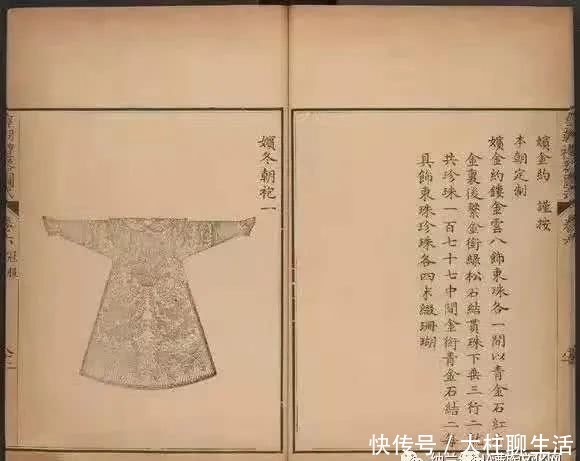 嬪金約　謹按
本朝定制
嬪金約鏤金雲八飾東珠各一間以青金石紅
金裏後繫金銜綠松石結貫珠下垂三行三
共珍珠一百七十七中間金銜青金石結二
具飾東珠珍珠各四末綴珊瑚
嬪冬朝袍一
卷六 冠服
快传号/大柱聊生活